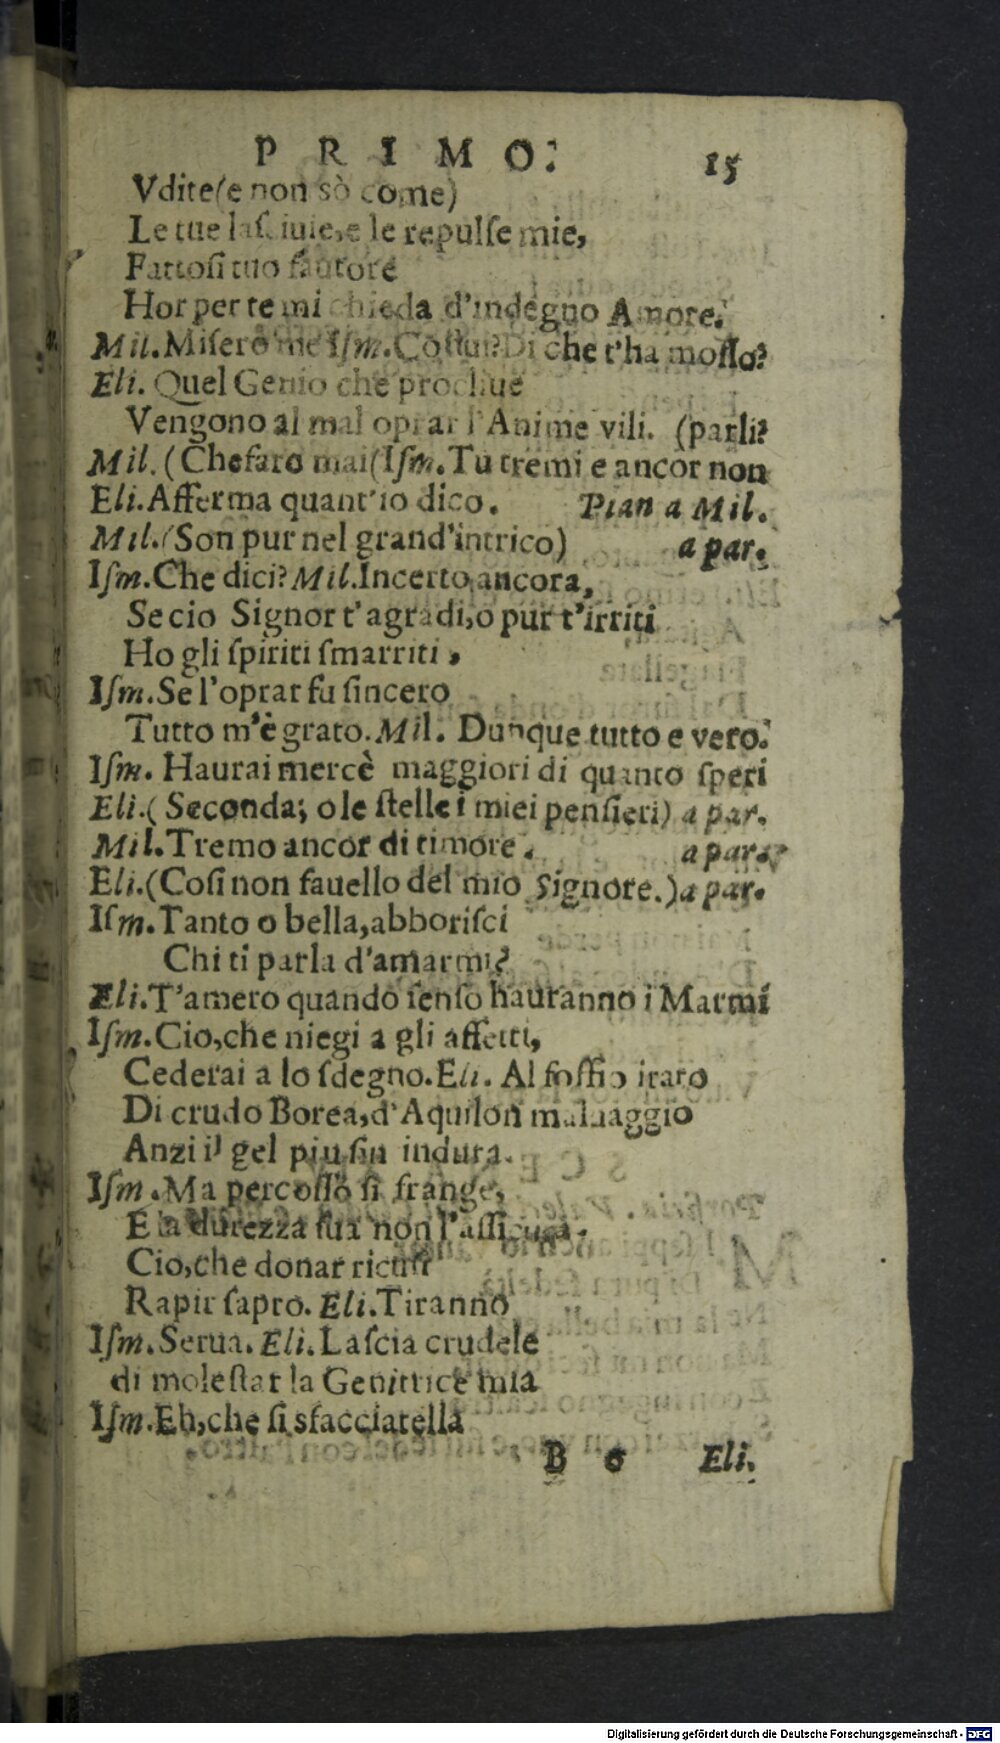 PRIMO. 15
Vdite(e non sò come)
Le tue laſciuie,e le repulſe mie,
Fattoſi tuo fautore
Hor per te mi chieda d'indegno Amore.
Mil.Miſero me Iſm.Coſtui?Di che t'ha moſſo?
Eli. Quel Genio che procliue
Vengono al mal oprar l'Anime vili. (parli?
Mil.(Che faro mai(Iſm.Tu tremi e ancor non
Eli.Afferma quant'io dico. Pian a Mil.
Mil.(Son pur nel grand'intrico) a par.
Iſm.Che dici?Mil.Incerto ancora,
Se cio Signor t'agradi,o pur t'irriti
Ho gli ſpiriti ſmarriti.
Iſm.Se l'oprar fu ſincero
Tutto m'è grato.Mil. Dunque tutto e vero.
Iſm. Haurai mercè maggiori di quanto ſperi
Eli.(Seconda; o le ſtelle i miei penſieri) a par.
Mil.Tremo ancor di timore. a par.
Eli.(Coſi non fauello del mio Signore.)a par.
Iſm.Tanto o bella,abboriſci
Chi ti parla d'amarmi?
Eli.T'amero quando ſenſo hauranno i Marmi
Iſm.Cio,che niegi a gli affetti,
Cederai a lo ſdegno.Eli. Al ſoffio irato
Di crudo Borea,d'Aquilon maluaggio
Anzi il gel piu ſin indura.
Iſm.Ma percoſſo ſi frange,
E la durezza ſua non l'aſſicura.
Cio,che donar ricuſi
Rapir ſapro. Eli.Tiranno
Iſm.Serua. Eli.Laſcia crudele
di moleſtar la Genitrice mia
Iſm.Eh,che ſi sfacciatella
B 6 Eli.
Digitalisierung gefördert durch die Deutsche Forschungsgemeinschaft - DFG